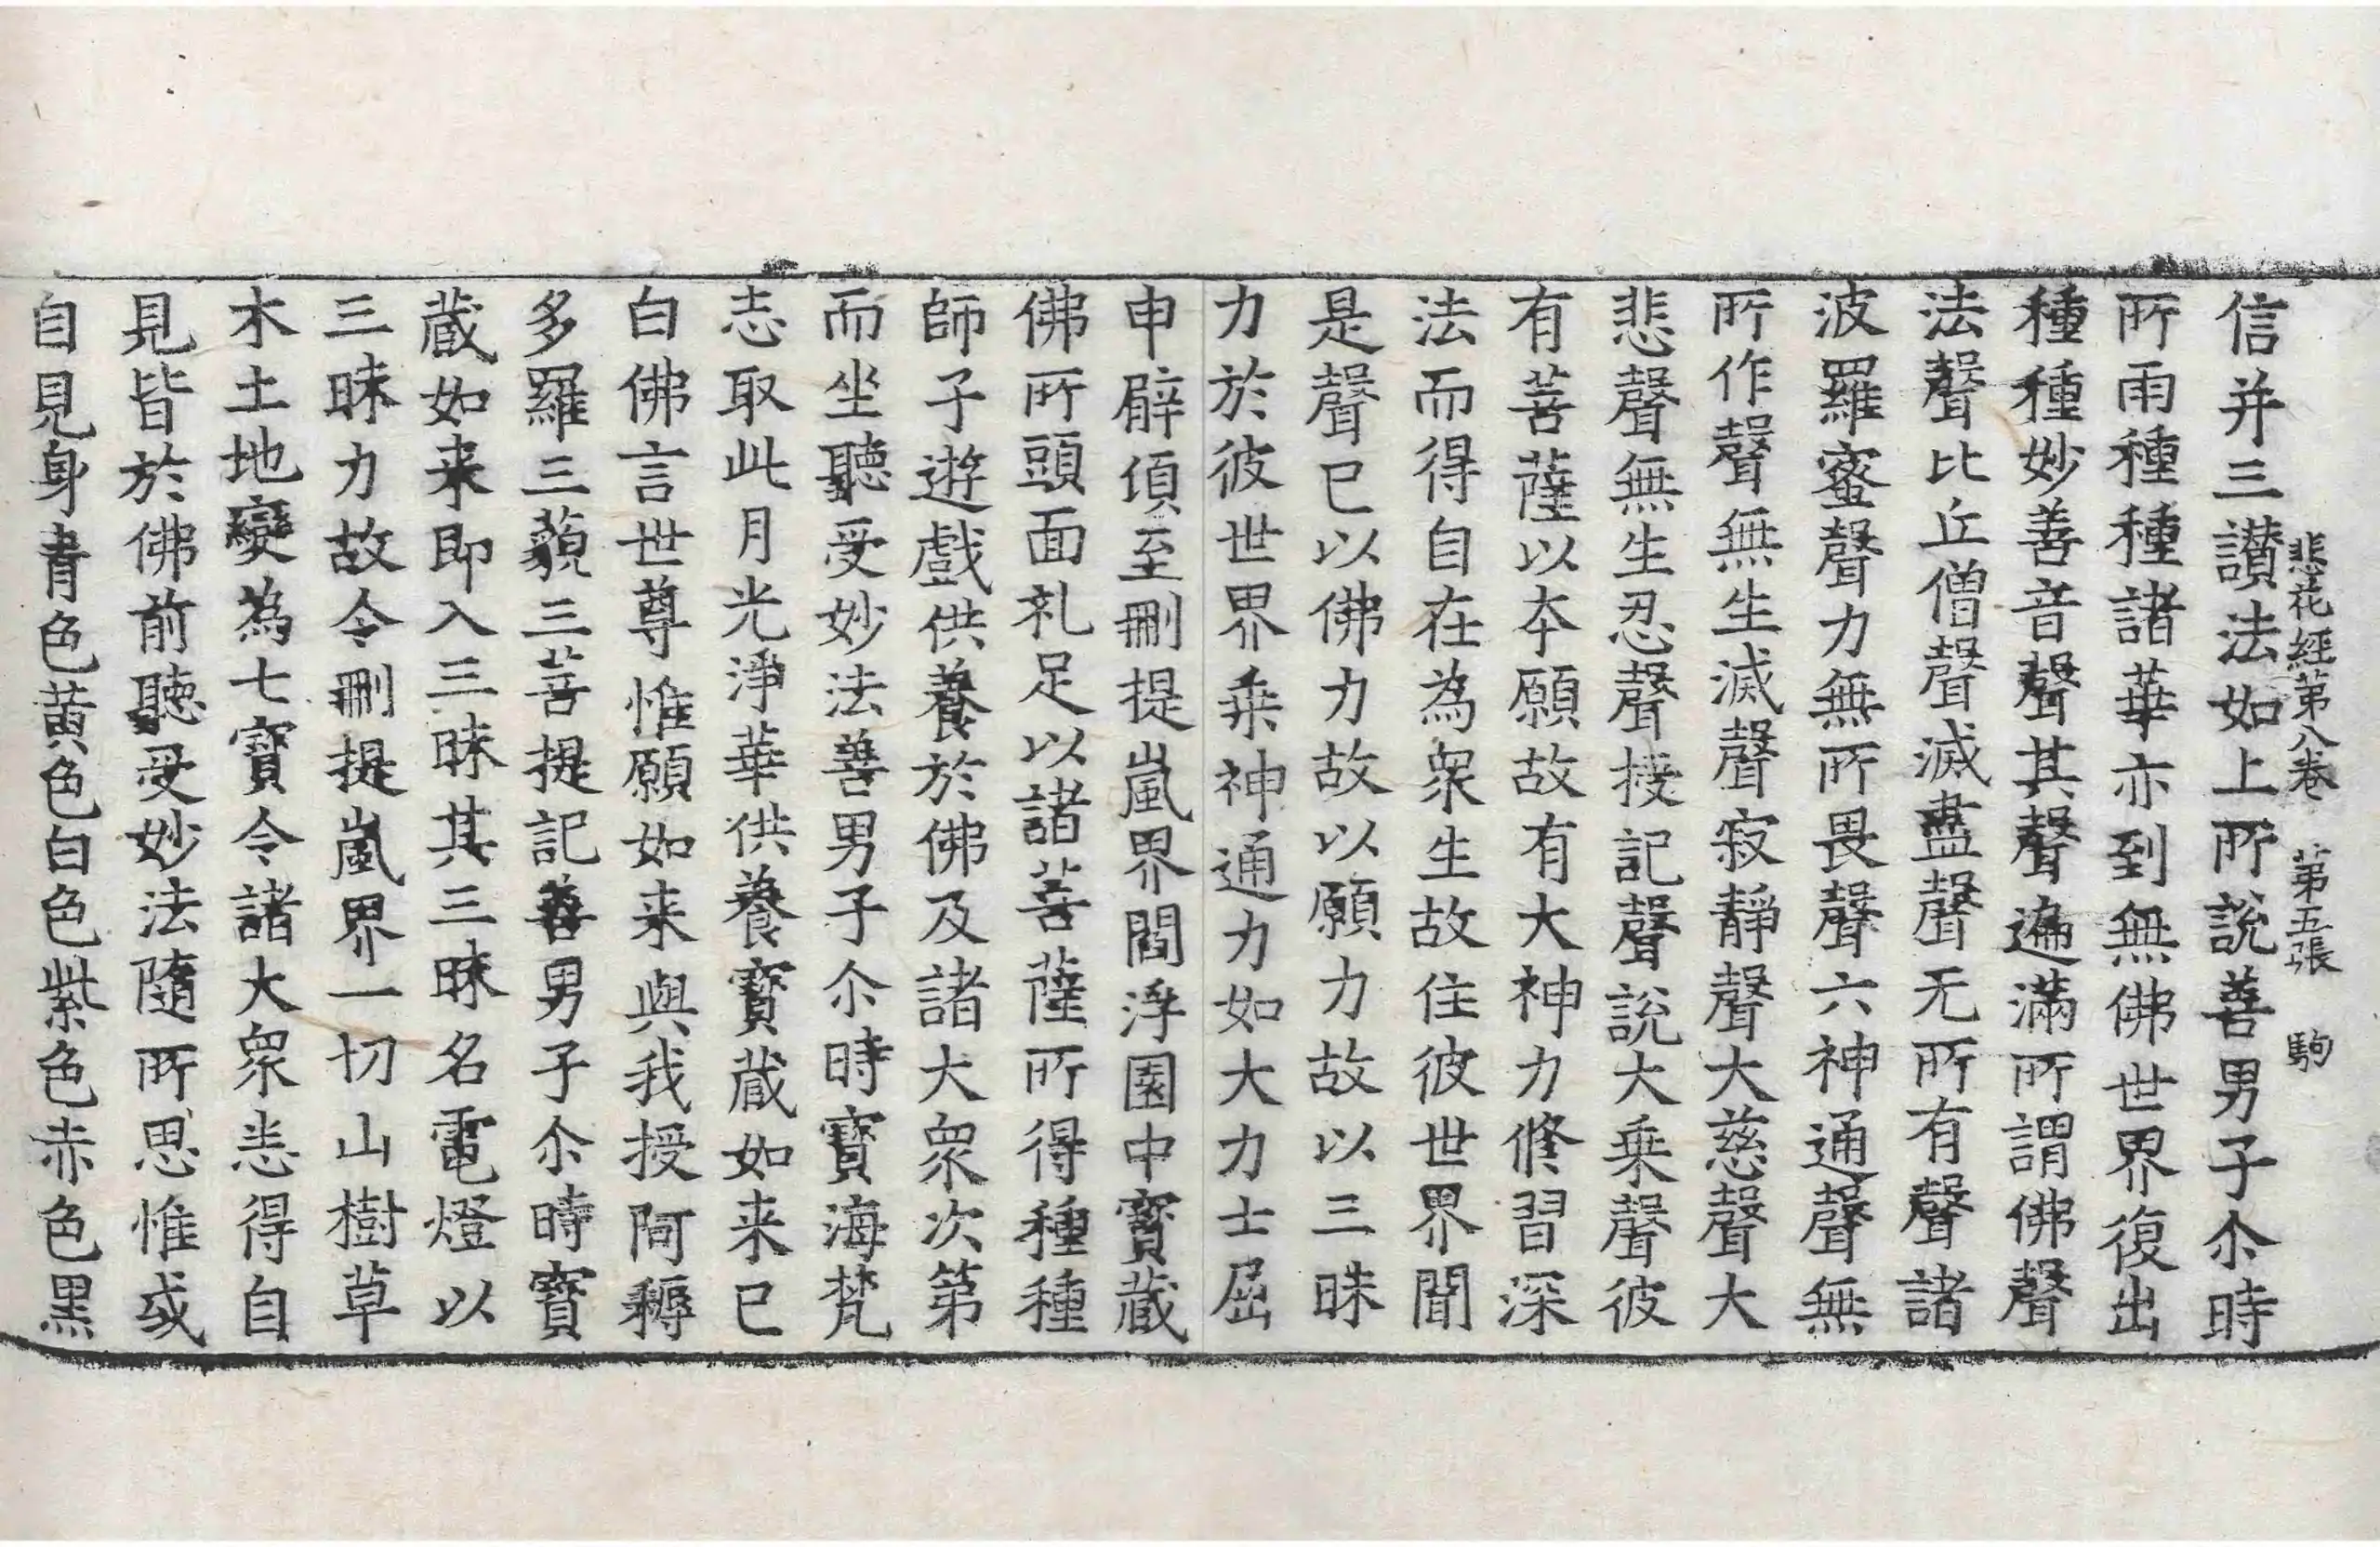 悲花經第八卷　第五張　駒
信并三讃法如上所說善男子尒時
所雨種種諸華亦到無佛世界復出
種種妙善音聲其聲遍滿所謂佛聲
法聲比丘僧聲滅盡聲无所有聲諸
波羅蜜聲力無所畏聲六神通聲無
所作聲無生滅聲寂靜聲大慈聲大
悲聲無生忍聲授記聲說大乘聲彼
有菩薩以本願故有大神力修習深
法而得自在為衆生故住彼世界聞
是聲已以佛力故以願力故以三昧
力於彼世界乘神通力如大力士屈
申臂頃至刪提嵐界閻浮園中寶蔵
佛所頭面礼足以諸菩薩所得種種
師子遊戲供養於佛及諸大衆次第
而坐聽受妙法善男子尒時寶海梵
志取此月光淨華供養寶蔵如来已
白佛言世尊惟願如来與我授阿耨
多羅三藐三菩提記善男子尒時寶
蔵如来即入三昧其三昧名電燈以
三昧力故令刪提嵐界一切山樹草
木土地變為七寶令諸大衆悉得自
見皆於佛前聽受妙法隨所思惟或
自見身青色黃色白色紫色赤色黑